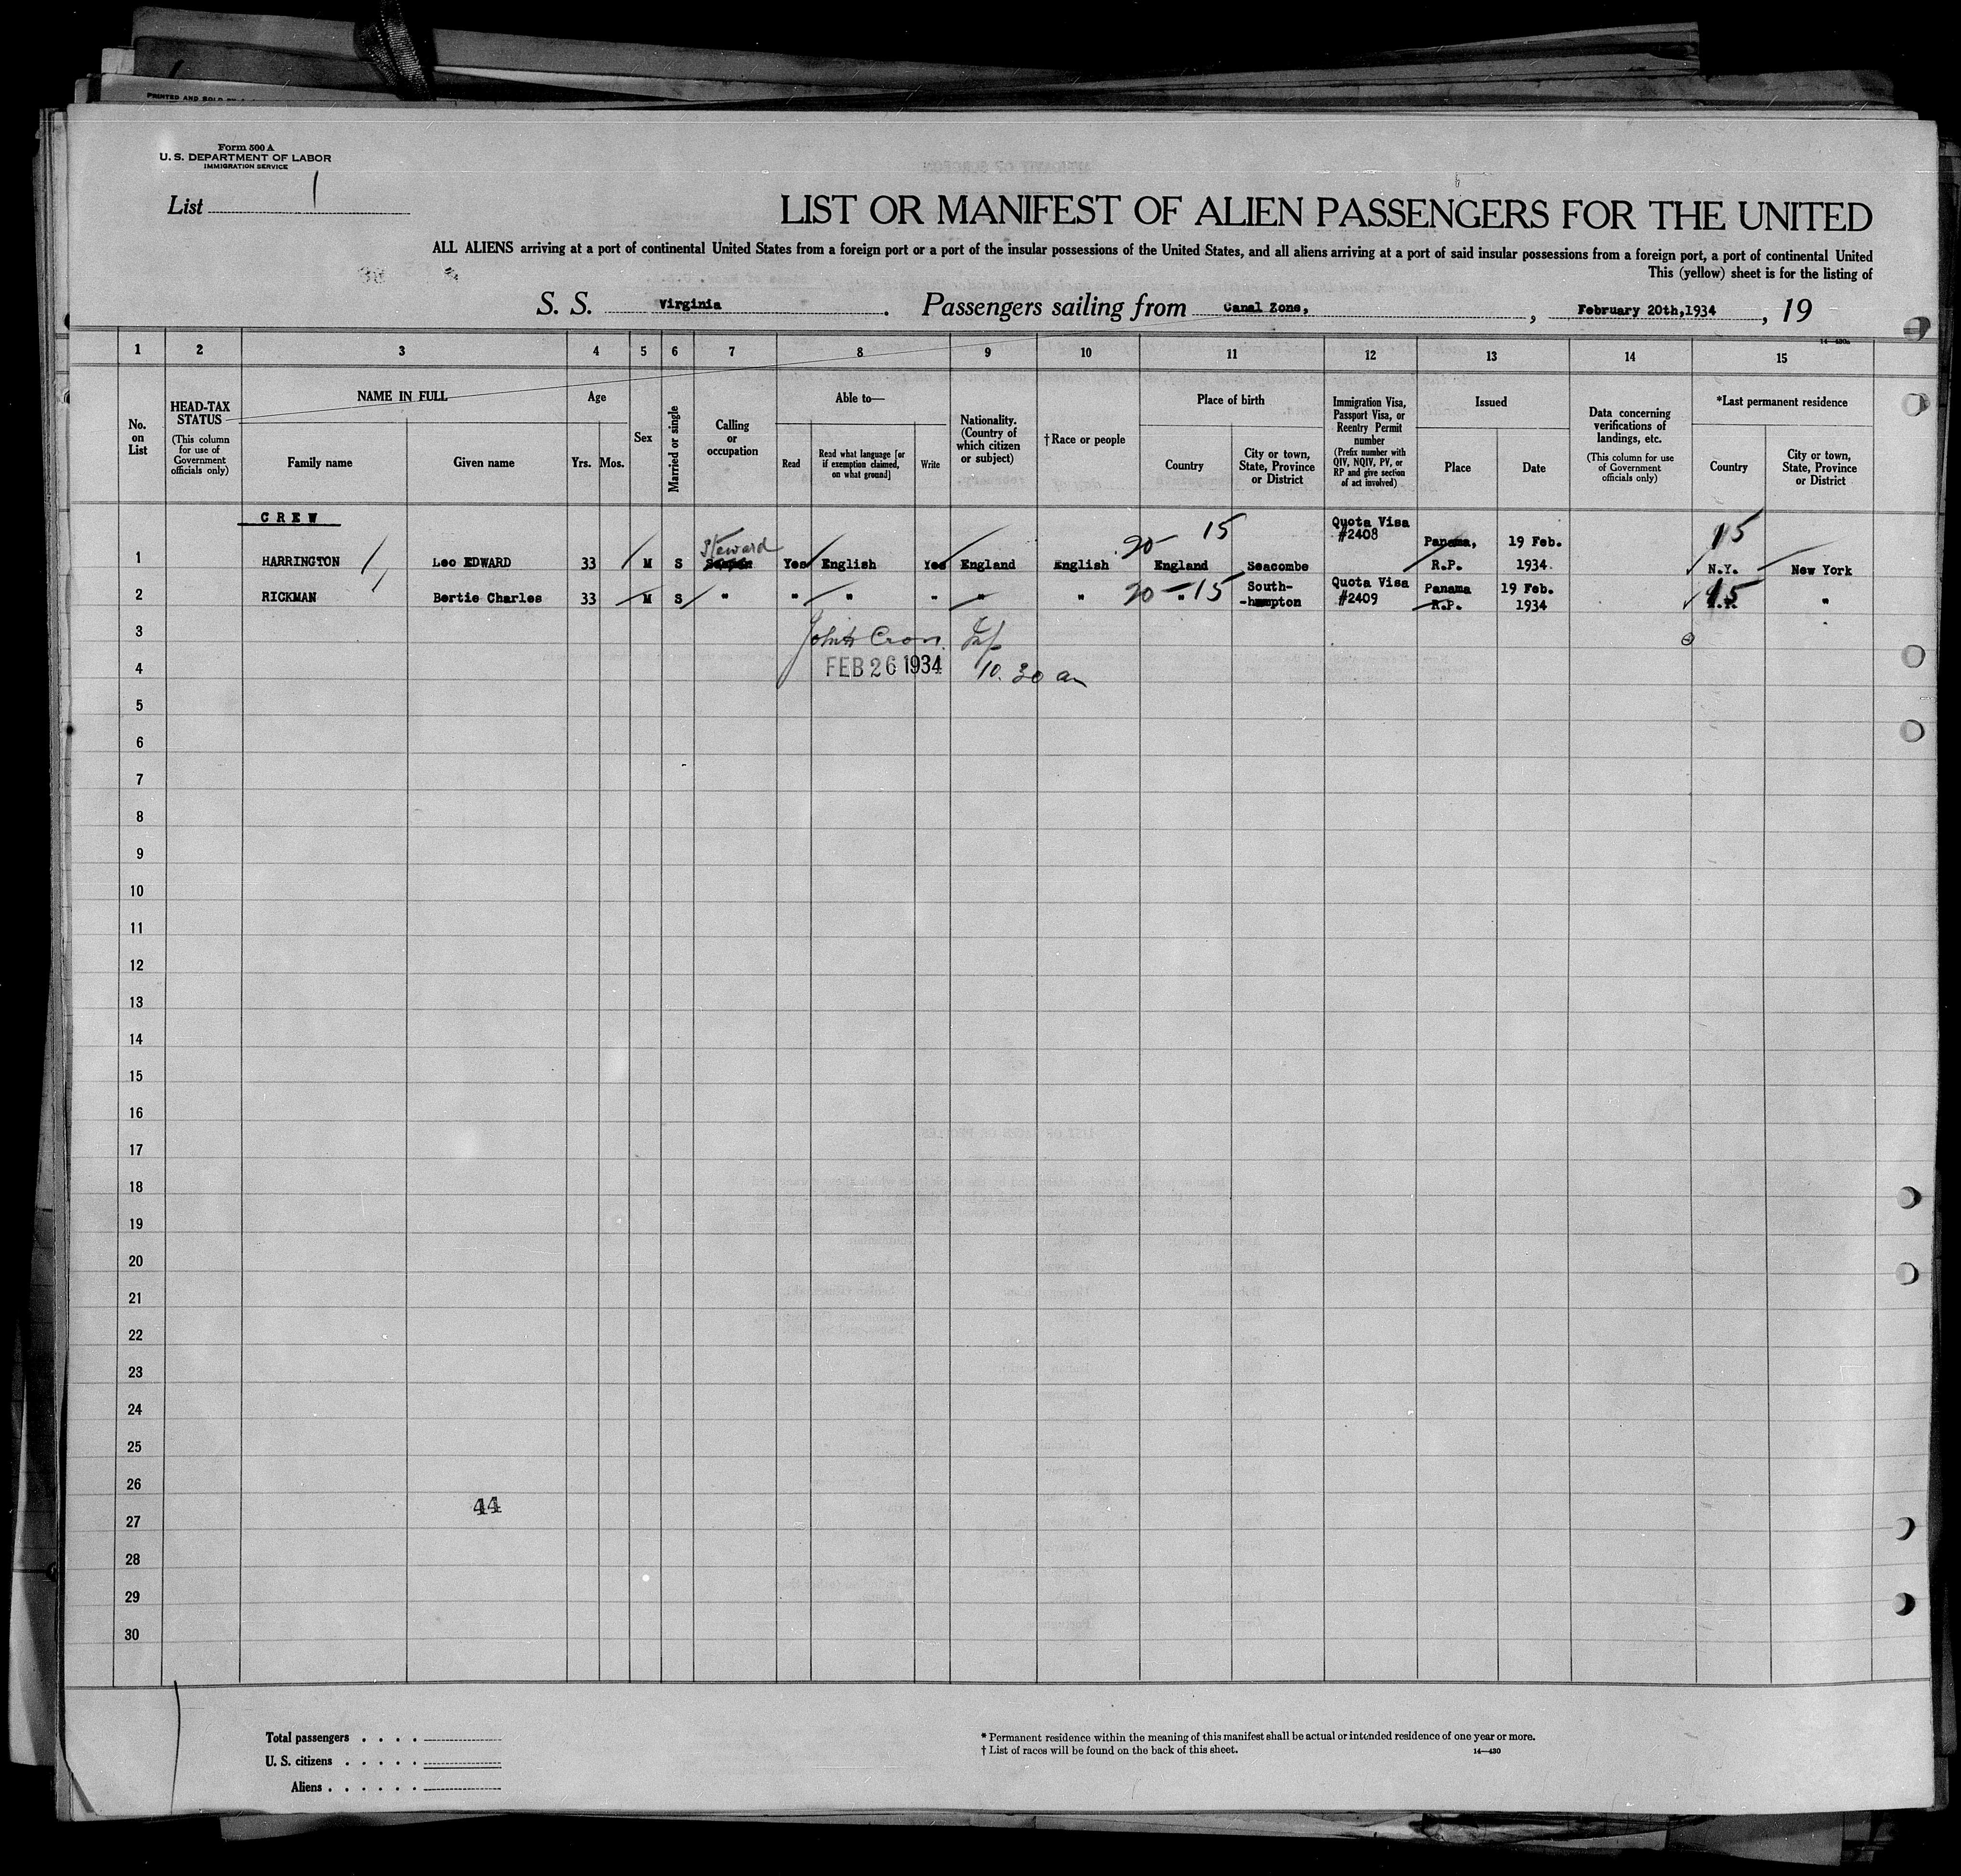 PRINTED AND SOLD BY
Form 500 A
U. S. DEPARTMENT OF LABOR
IMMIGRATION SERVICE
List 1
LIST OR MANIFEST OF ALIEN PASSENGERS FOR THE UNITED
ALL ALIENS arriving at a port of continental United States from a foreign port or a port of the insular possessions of the United States, and all aliens arriving at a port of said insular possessions from a foreign port, a port of continental United
This (yellow) sheet is for the listing of
S. S. Virginia. Passengers sailing from Canal Zone, , February 20th,1934 , 19
14—430a
1 2 3 4 5 6 7 8 9 10 11 12 13 14 15
No. on List
HEAD-TAX STATUS (This column for use of Government officials only)
NAME IN FULL
Family name Given name
Age
Yrs. Mos.
Sex
Married or single
Calling or occupation
Able to—
Read
Read what language [or if exemption claimed, on what ground]
Write
Nationality. (Country of which citizen or subject)
†Race or people
Place of birth
Country
City or town, State, Province or District
Immigration Visa, Passport Visa, or Reentry Permit number (Prefix number with QIV, NQIV, PV, or RP and give section of act involved)
Issued
Place Date
Data concerning verifications of landings, etc. (This column for use of Government officials only)
*Last permanent residence
Country
City or town, State, Province or District
CREW
Steward 20- 15 Quota Visa 15
1 HARRINGTON Leo EDWARD 33 M S Yes English Yes England English England Seacombe #2408 Panama, R.P. 19 Feb. 1934. N.Y. New York
2 RICKMAN Bertie Charles 33 M S " " " " " " 20- " 15 South--hampton Quota Visa #2409 Panama R.P. 19 Feb. 1934 15 "
3 John Cron
4 FEB 26 1934 10.30 am
5
6
7
8
9
10
11
12
13
14
15
16
17
18
19
20
21
22
23
24
25
26
44
27
28
29
30
Total passengers . . . .
U. S. citizens . . . . .
Aliens . . . . . .
* Permanent residence within the meaning of this manifest shall be actual or intended residence of one year or more.
† List of races will be found on the back of this sheet. 14—430